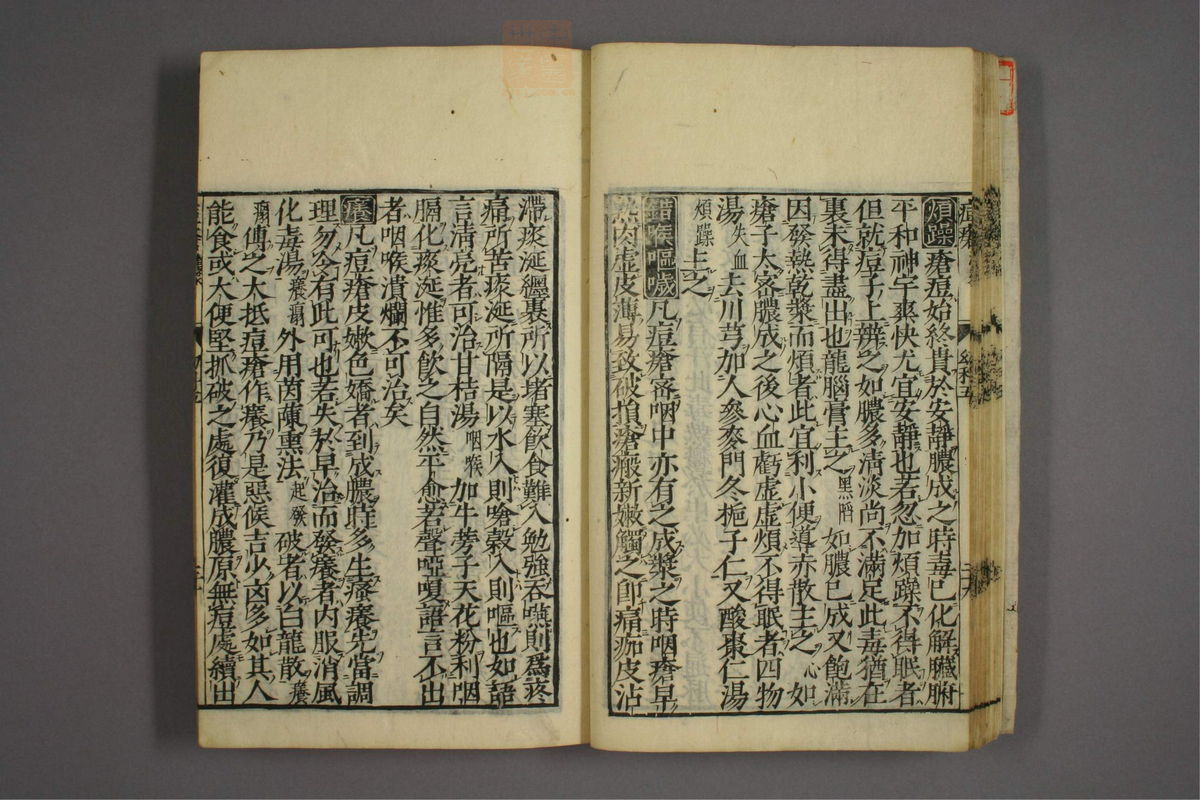 煩躁瘡痘始終貴於安靜膿成之時毒已化解臟腑
平和神字爽快尤宜安靜也若忽加煩躁不得眠者
但就痘子上辨之如膿多清淡尚不滿足此毒猶在
裏未得盡出也龍腦膏主之黑䧟如膿已成又飽滿
因發熱乾漿而煩者此宜利小便導赤散主之心如
瘡子太密膿成之後心血虧虛虛煩不得眠者四物
湯失血去川芎加人參麥門冬梔子仁又酸棗仁湯
煩躁主之
錯喉嘔噦凡痘瘡密咽中亦有之成漿之時咽瘡早
熟肉虛皮薄易致破損瘡瘢新嫩觸之即痛痂皮沾
滯痰涎纏裹所以堵塞飲食難入勉強吞嚥則為疼
痛所苦痰涎所隔是以水入則嗆穀入則嘔也如語
言清亮者可治甘桔湯咽喉加牛蒡子天花粉利咽
膈化痰涎惟多飲之自然平愈若聲啞嗄語言不出
者咽喉潰爛不可治矣
癢凡痘瘡皮嫩色嬌者到成膿時多生瘙癢先當調
理勿令有此可也若失於早治而發癢者內服消風
化毒湯癢瘸外用茵蔯熏法起發破者以白龍散癢
瘸傅之大抵痘瘡作癢乃是惡候吉少凶多如其人
能食或大便堅抓破之處復灌成膿原無痘處續出